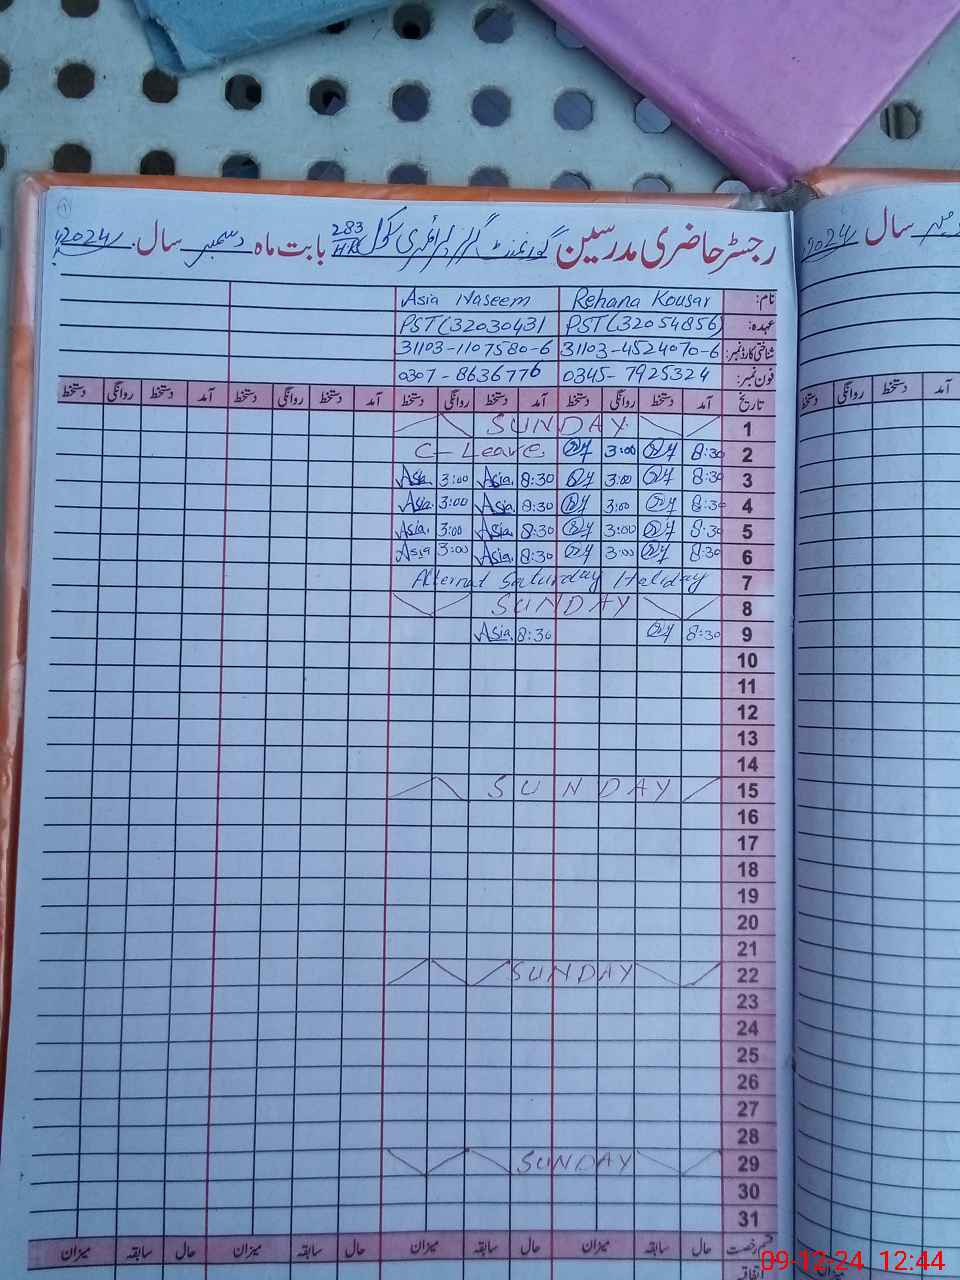 رجسٹر حاضری مدرسین گورنمنٹ گرلز پرائمری سکول 283/HR بابت ماہ دسمبر سال 2024ء
سال 2024ء
نام: Rehana Kousar Asia Naseem
عہدہ: PST(32054856) PST(32030431
شناختی کارڈ نمبر: 31103-4524070-6 31103-1107580-6
فون نمبر: 0345-7925324 0307-8636776
تاریخ آمد دستخط روانگی دستخط آمد دستخط روانگی دستخط آمد دستخط روانگی دستخط آمد دستخط روانگی دستخط
آمد دستخط روانگی دستخط
1 SUNDAY
2 8:30 3:00 C-Leave
3 8:30 3:00 8:30 Asia 3:00 Asia
4 8:30 3:00 8:30 Asia 3:00 Asia
5 8:30 3:00 8:30 Asia 3:00 Asia
6 8:30 3:00 8:30 Asia 3:00 Asia
7 Alternat Saturday Haliday
8 SUNDAY
9 8:30 8:30 Asia
10
11
12
13
14
15 SUNDAY
16
17
18
19
20
21
22 SUNDAY
23
24
25
26
27
28
29 SUNDAY
30
31
قسم رخصت حال سابقہ میزان حال سابقہ میزان حال سابقہ میزان حال سابقہ میزان
اتفاقیہ
09-12-24 12:44